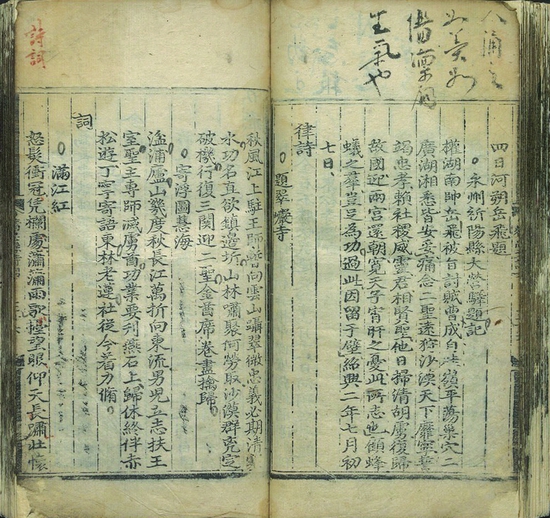 生氣也
四日河朔岳飛題
○永州祁陽縣大營驛題記
權湖南帥岳飛被旨討賊曹成自桂嶺平蕩巢穴二
廣湖湘悉皆安妥痛念二聖遠狩沙漠天下靡寧誓
竭忠孝賴社稷威靈君相賢聖他日掃清胡虜復歸
故國迎兩宮還朝寬天子宵旰之憂此所志也顧蜂
蟻之羣豈足為功過此因留于壁紹興二年七月初
七日
律詩
○題翠巖寺
秋風江上駐王師暫向雲山躡翠微忠義必期清塞
水功名直欲鎮邊圻山林嘯聚何勞取沙漠群兇定
破機行復三關迎二聖金酋席卷盡擒歸
○寄浮圖慧海
湓浦廬山幾度秋長江萬折向東流男兒立志扶王
室聖主專師滅虜酋功業要刊燕石上歸休終伴赤
松遊丁寧寄語東林老蓮社從今着力脩
詞
○滿江紅
怒髮衝冠凭欄處瀟瀟雨歇擡望眼仰天長嘯壯懷
詩詞